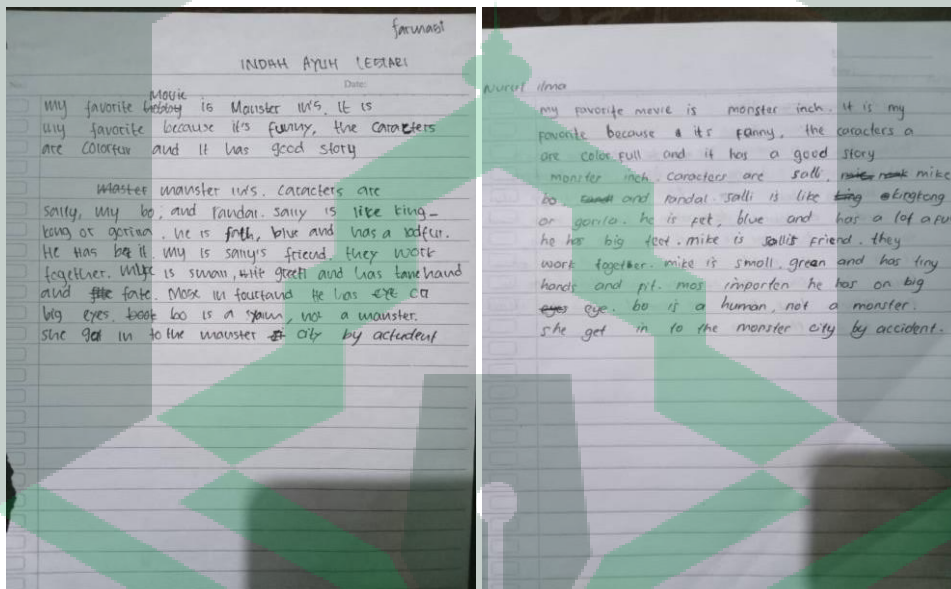 farmasi
INDAH AYUH LESTARI
Date:
Movie
my favorite hobby is Manster INS. It is
my favorite because it's funny, the caracters
are colorfur and it has good story
Master manster INS. caracters are
sally, my bo, and randal. sally is like king-
kong or gorinn. he is fath, blue and has a lodfur.
He Has be it. My is sally's friend they work
together. Mike is small, and has hand
and fate. Most in He has eye
big eyes. book bo is a, not a manster.
she got in to the manster city by actudent
Nurul ilma
my favorite movie is monster inch. it is my
favorite because its fanny, the caracters a
are color full and it has a good story
monster inch. caracters are salli, mike
bo. and randal. salli is like king kingkong
or gorila. he is fet, blue and has a lot a fu
he has big feet. mike is sallis friend. they
work together. mike is small. green and has tiny
hands and pit. mos importen he has on big
eyes eye. bo is a human, not a monster.
she get in to the monster city by accident.